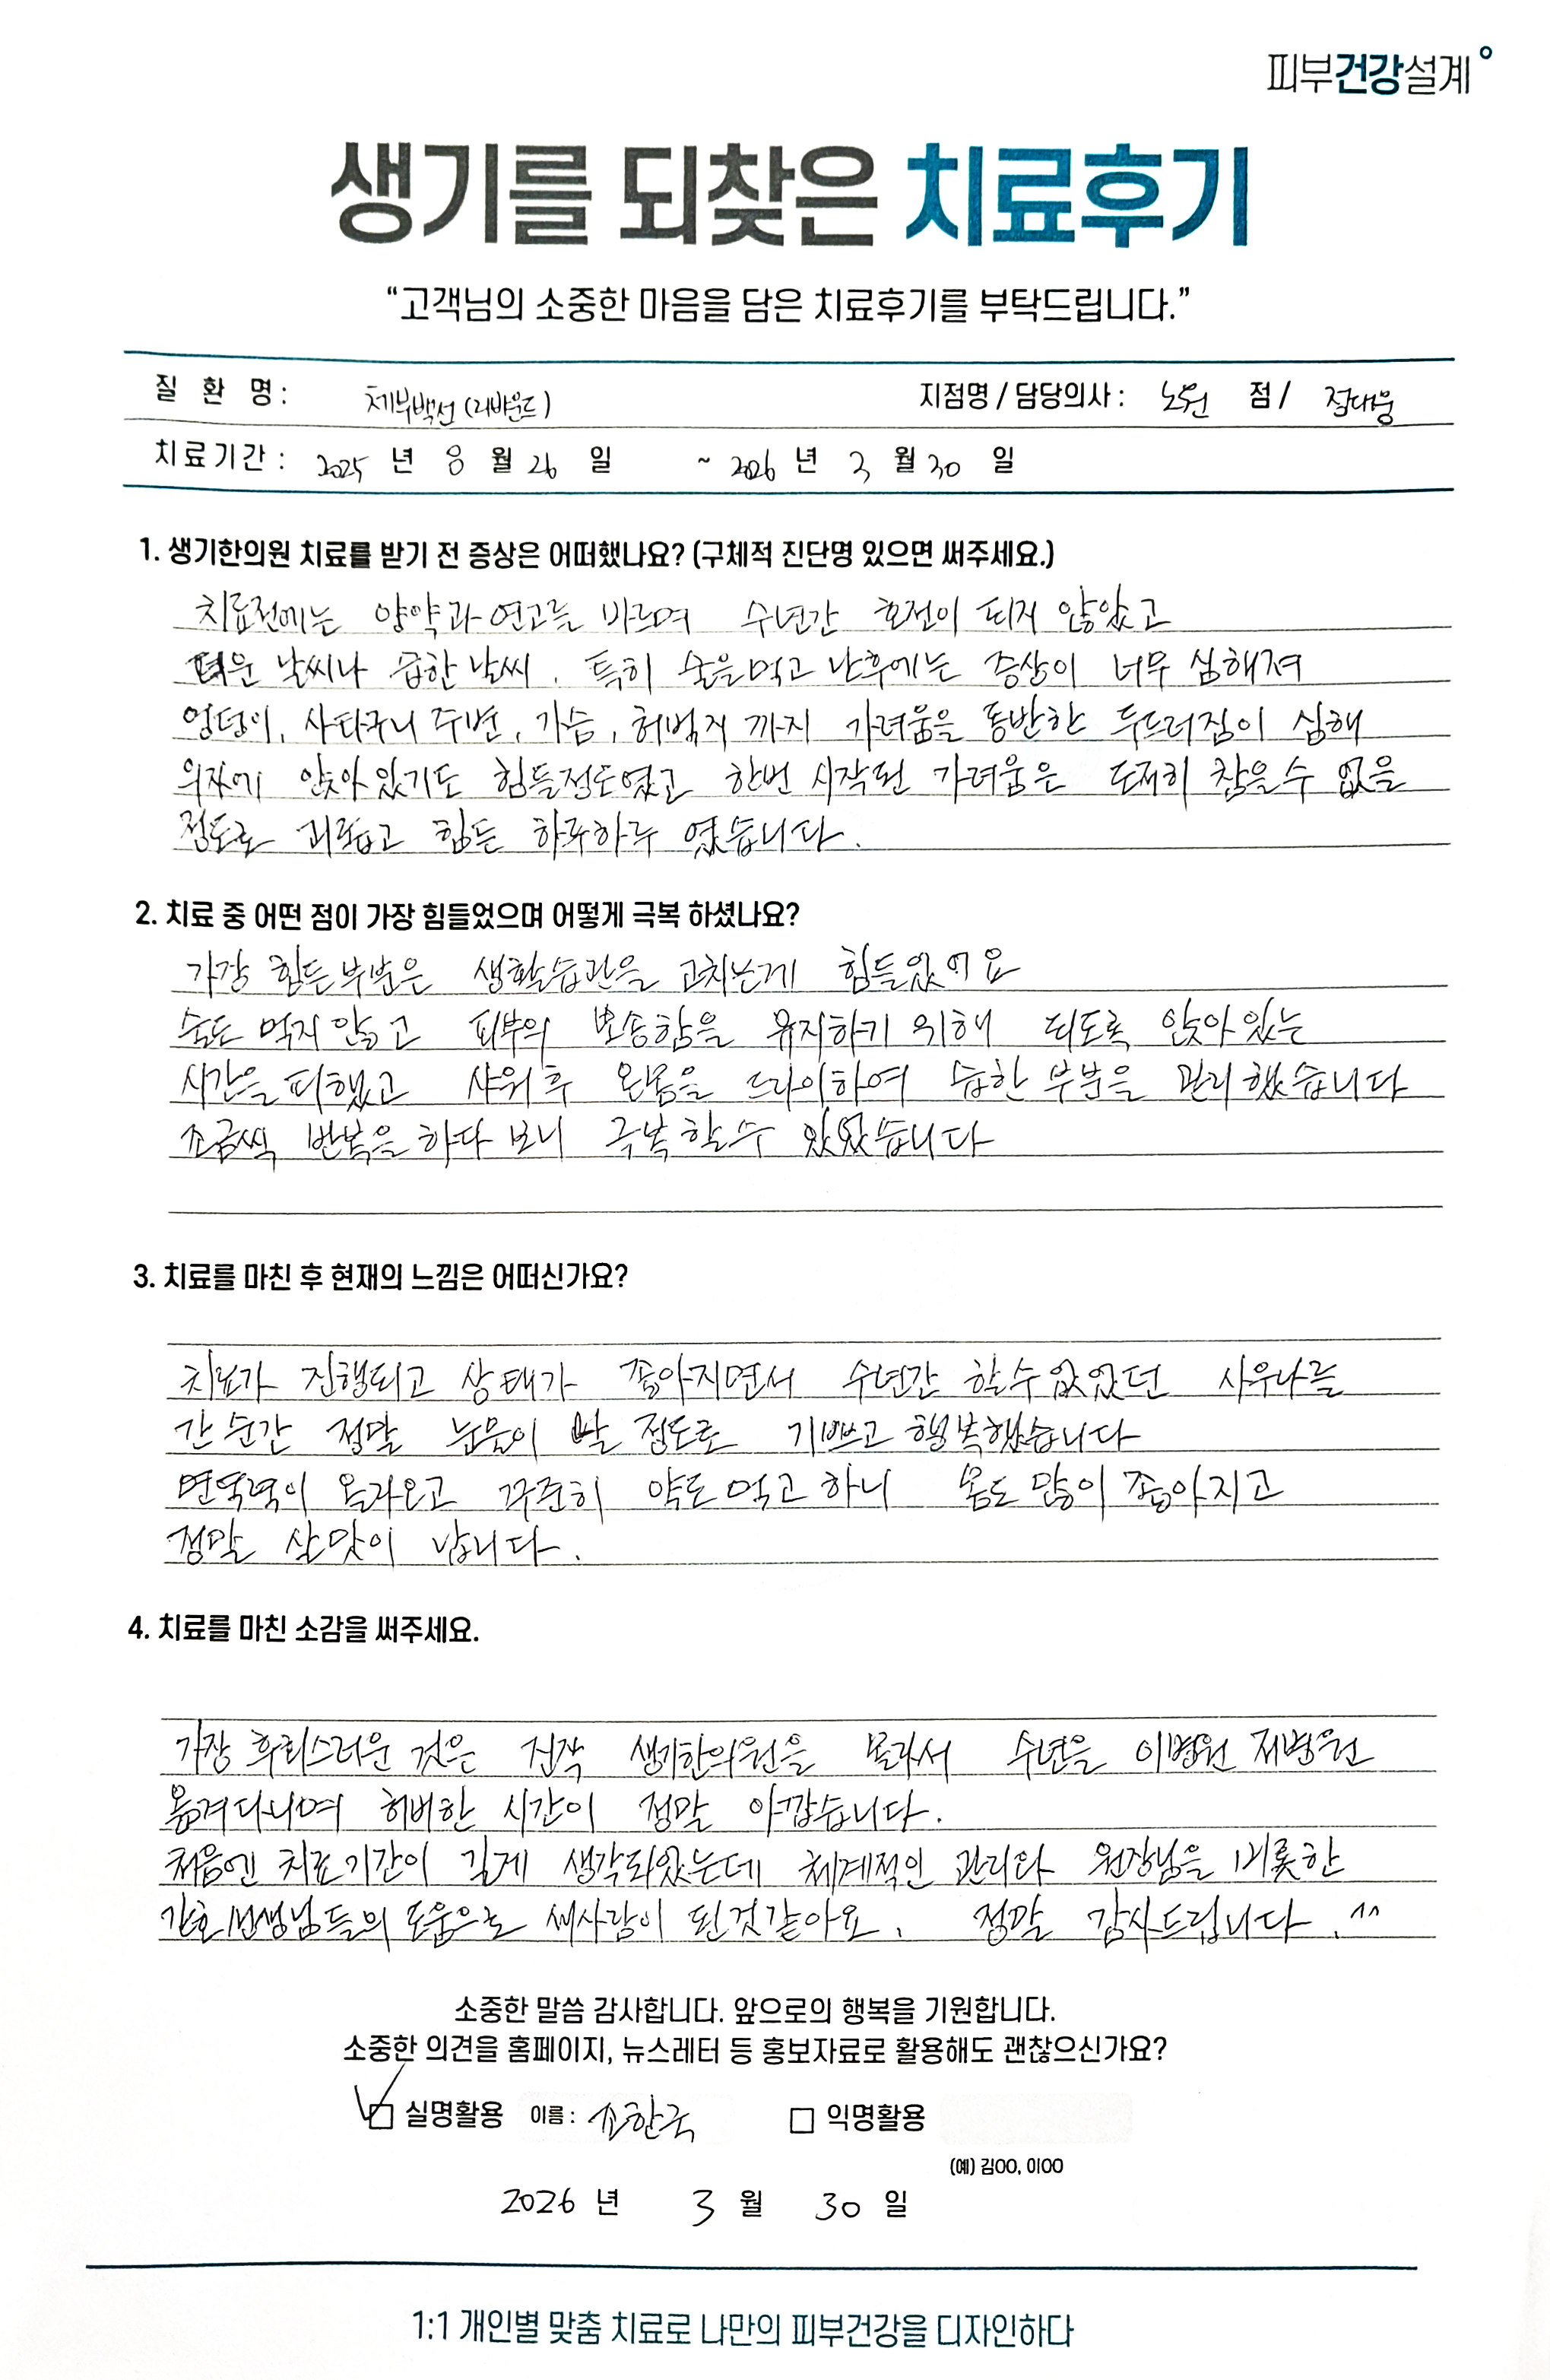 피부건강설계
생기를 되찾은 치료후기
“고객님의 소중한 마음을 담은 치료후기를 부탁드립니다.”
질 환 명 : 체부백선(리바운드) 지점명 / 담당의사 : 노원 점 / 정대웅
치료기간 : 2025 년 8 월 26 일 ~ 2026 년 3 월 30 일
1. 생기한의원 치료를 받기 전 증상은 어떠했나요? (구체적 진단명 있으면 써주세요.)
치료전에는 양약과 연고를 바르며 수년간 호전이 되지 않았고
더운 날씨나 습한 날씨. 특히 술을 먹고 난후에는 증상이 너무 심해져
엉덩이, 사타구니 주변, 가슴, 허벅지 까지 가려움을 동반한 두드러짐이 심해
의자에 앉아 있기도 힘들정도였고 한번 시작된 가려움은 도저히 참을수 없을
정도로 괴롭고 힘든 하루하루 였습니다.
2. 치료 중 어떤 점이 가장 힘들었으며 어떻게 극복 하셨나요?
가장 힘든부분은 생활습관을 고치는게 힘들었어요
술도 먹지 않고 피부의 뽀송함을 유지하기 위해 되도록 앉아있는
시간을 피했고 샤워후 온몸을 드라이하여 습한 부분을 관리했습니다
조금씩 반복을 하다 보니 극복할수 있었습니다
3. 치료를 마친 후 현재의 느낌은 어떠신가요?
치료가 진행되고 상태가 좋아지면서 수년간 할수없었던 사우나를
간 순간 정말 눈물이 날 정도로 기쁘고 행복했습니다
면역력이 올라오고 꾸준히 약도 먹고 하니 몸도 많이 좋아지고
정말 살맛이 납니다.
4. 치료를 마친 소감을 써주세요.
가장 후회스러운 것은 진작 생기한의원을 몰라서 수년을 이병원 저병원
옮겨다니며 허비한 시간이 정말 아깝습니다.
처음엔 치료기간이 길게 생각되었는데 체계적인 관리와 원장님을 비롯한
간호선생님들의 도움으로 새사람이 된것같아요. 정말 감사드립니다.^^
소중한 말씀 감사합니다. 앞으로의 행복을 기원합니다.
소중한 의견을 홈페이지, 뉴스레터 등 홍보자료로 활용해도 괜찮으신가요?
실명활용 이름 : 소한국 익명활용
(예) 김OO, 이OO
2026 년 3 월 30 일
1:1 개인별 맞춤 치료로 나만의 피부건강을 디자인하다